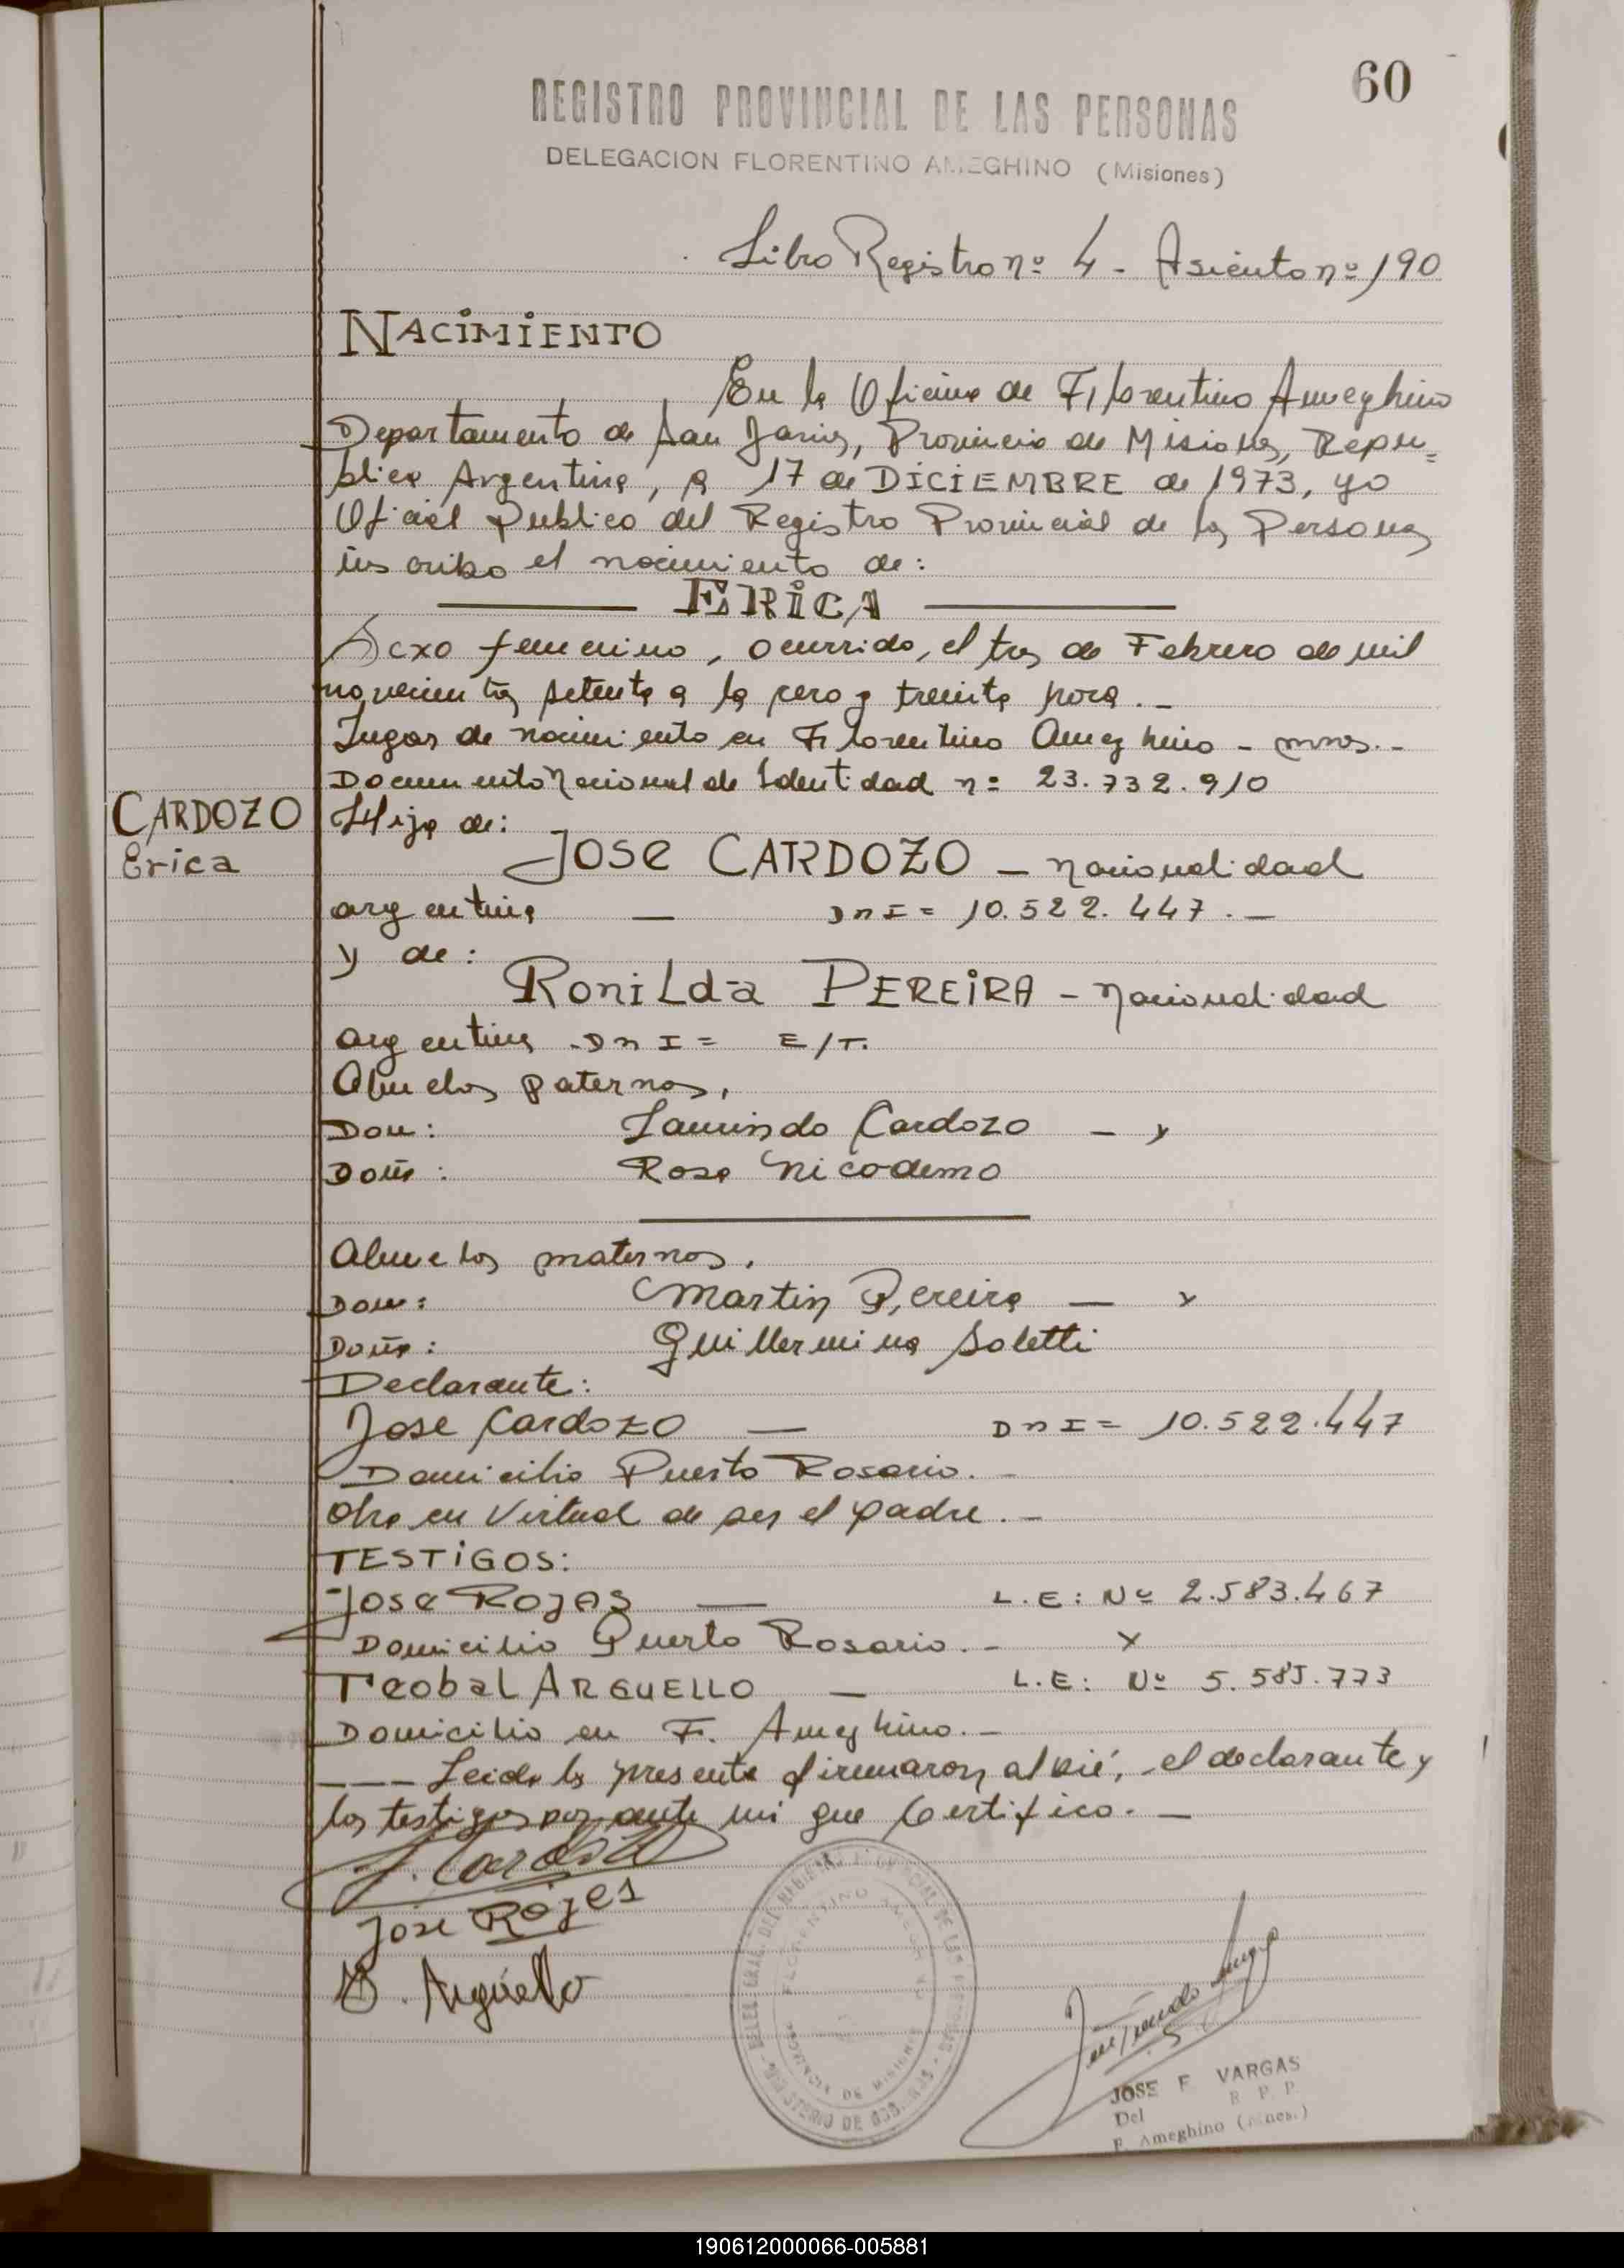 60
REGISTRO PROVINCIAL DE LAS PERSONAS
DELEGACION FLORENTINO AMEGHINO (Misiones)
Libro Registro nº 4 - Asiento nº 190
NACIMIENTO
En la Oficina de Florentino Ameghino
Departamento de San Javier, Provincia de Misiones, Repu=
blica Argentina, a 17 de DICIEMBRE de 1973, yo
Oficial Publico del Registro Provincial de las Personas
inscribo el nacimiento de:
ERICA
Sexo femenino, ocurrido, el tres de Febrero de mil
novecientos setenta a la cero y treinta hora.-
Lugar de nacimiento en Florentino Ameghino - mnes.-
Documento Nacional de Identidad nº 23.732.910
CARDOZO
Erica
Hija de:
JOSE CARDOZO - nacionalidad
argentina — DNI= 10.522.447.-
y de:
RONILda PEREIRA - nacionalidad
argentina - DNI= E/T.
Abuelos paternos,
Don: Laurindo Cardozo - y
Doña: Rosa Nicodemo
Abuelos maternos,
Don: Martin Pereira — y
Doña: Guillermina Soletti
Declarante:
Jose Cardozo — DNI= 10.522.447
Domicilio Puerto Rosario.-
Obra en Virtud de ser el padre.-
TESTIGOS:
JOSE ROJAS — L.E: Nº 2.583.467
Domicilio Puerto Rosario.- y
TeobaL ARGUELLO — L.E: Nº 5.585.773
Domicilio en F. Ameghino.-
--- Leida la presente firmaron al pié, el declarante y
los testigos por ante mi que Certifico.-
J. Cardozo
Jose Rojes
Arguello
JOSE F VARGAS
Del R P P
F. Ameghino (Mnes.)
190612000066-005881